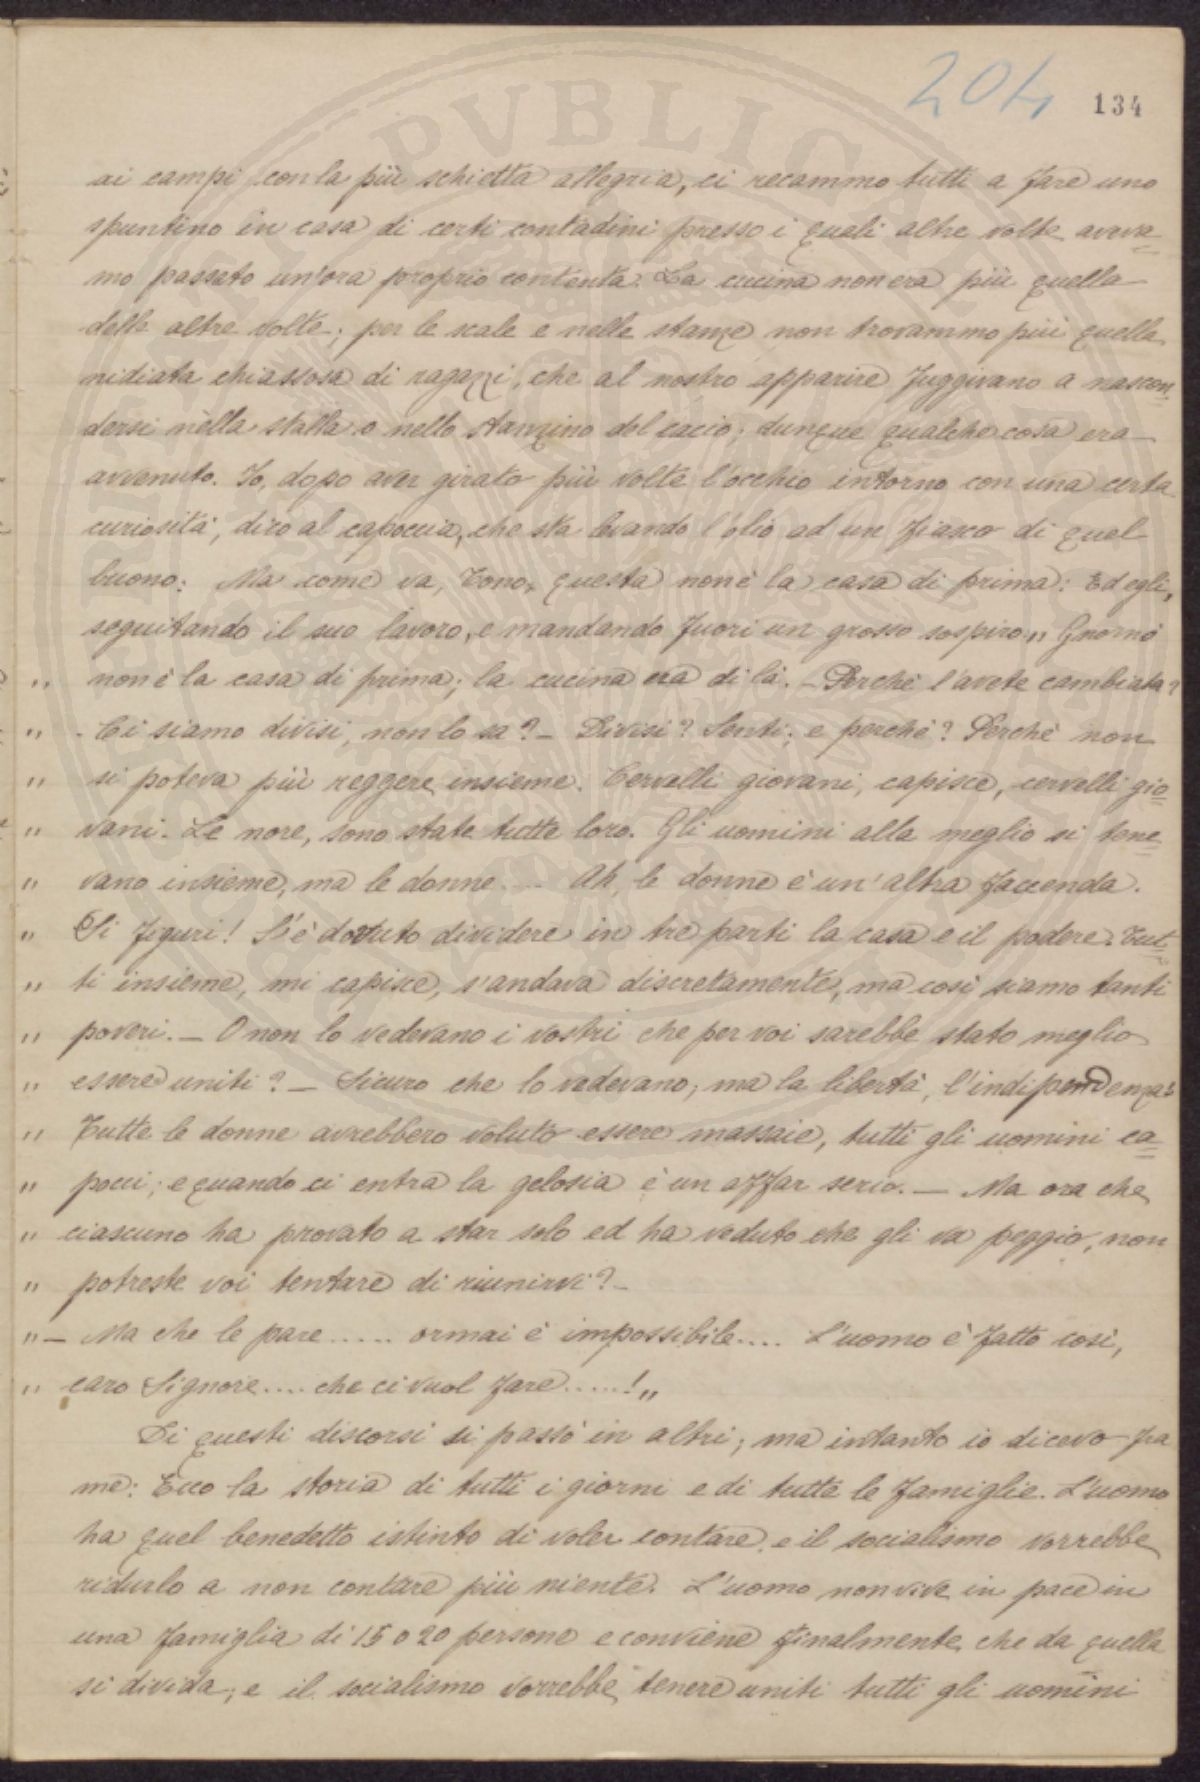 204 134
ai campi con la più schietta allegria, ci recammo tutti a fare uno
spuntino in casa di certi contadini presso i quali altre volte aveva=
mo passato un'ora proprio contenta. La cucina non era più quella
delle altre volte; per le scale e nelle stanze non trovammo più quella
nidiata chiassosa di ragazzi, che al nostro apparire fuggivano a nascon=
dersi nella stalla o nello stanzino del cacio; dunque qualche cosa era
avvenuto. Io, dopo aver girato più volte l'occhio intorno con una certa
curiosità, dico al capoccia, che sta levando l'olio ad un fiasco di quel
buono: Ma come va, Tono, questa non è la casa di prima: Ed egli,
seguitando il suo lavoro, e mandando fuori un grosso sospiro: „ Gnornò
„ non è la casa di prima; la cucina era di là. – Perchè l'avete cambiata?
„ - Ci siamo divisi, non lo sa? – Divisi? Senti; e perchè? Perchè non
„ si poteva più reggere insieme. Cervelli giovani, capisce, cervelli gio=
„ vani. Le nore, sono state tutte loro. Gli uomini alla meglio si tene=
„ vano insieme, ma le donne.... Ah, le donne è un'altra faccenda.
„ Si figuri! S'è dovuto dividere in tre parti la casa e il podere. Tut=
„ ti insieme, mi capisce, s'andava discretamente, ma così siamo tanti
„ poveri. – O non lo vedevano i vostri che per voi sarebbe stato meglio
„ essere uniti? – Sicuro che lo vedevano; ma la libertà, l'indipendenza!
„ Tutte le donne avrebbero voluto essere massaie, tutti gli uomini ca=
„ pocci; e quando ci entra la gelosia è un affar serio. – Ma ora che
„ ciascuno ha provato a star solo ed ha veduto che gli va peggio, non
„ potreste voi tentare di riunirvi? –
„ – Ma che le pare ..... ormai è impossibile.... L'uomo è fatto così,
„ caro Signore.... che ci vuol fare.....! „
Di questi discorsi si passò in altri; ma intanto io dicevo fra
me: Ecco la storia di tutti i giorni e di tutte le famiglie. L'uomo
ha quel benedetto istinto di voler contare, e il socialismo vorrebbe
ridurlo a non contare più niente. L'uomo non vive in pace in
una famiglia di 15 o 20 persone e conviene finalmente che da quella
si divida; e il socialismo vorrebbe tenere uniti tutti gli uomini